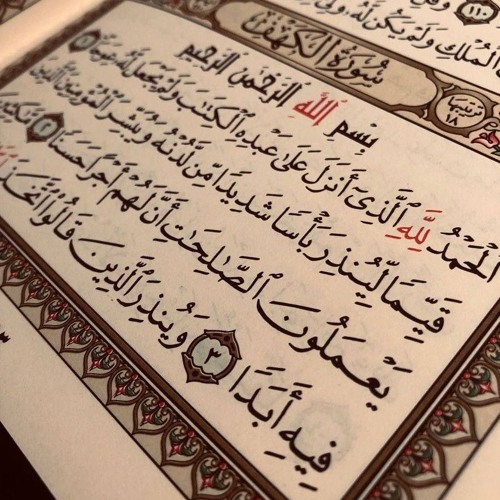 ١١٠
الملك ولم يكن له ولي
سورة الكهف
ترتيبها
١٨
بِسْمِ اللَّهِ الرَّحْمَٰنِ الرَّحِيمِ
الْحَمْدُ لِلَّهِ الَّذِي أَنزَلَ عَلَىٰ عَبْدِهِ الْكِتَٰبَ وَلَمْ يَجْعَل لَّهُ عِوَجَا ١
قَيِّمًا لِّيُنذِرَ بَأْسًا شَدِيدًا مِّن لَّدُنْهُ وَيُبَشِّرَ الْمُؤْمِنِينَ الَّذِينَ
يَعْمَلُونَ الصَّٰلِحَٰتِ أَنَّ لَهُمْ أَجْرًا حَسَنًا ٢ مَّٰكِثِينَ
فِيهِ أَبَدًا ٣ وَيُنذِرَ الَّذِينَ قَالُوا اتَّخَذَ